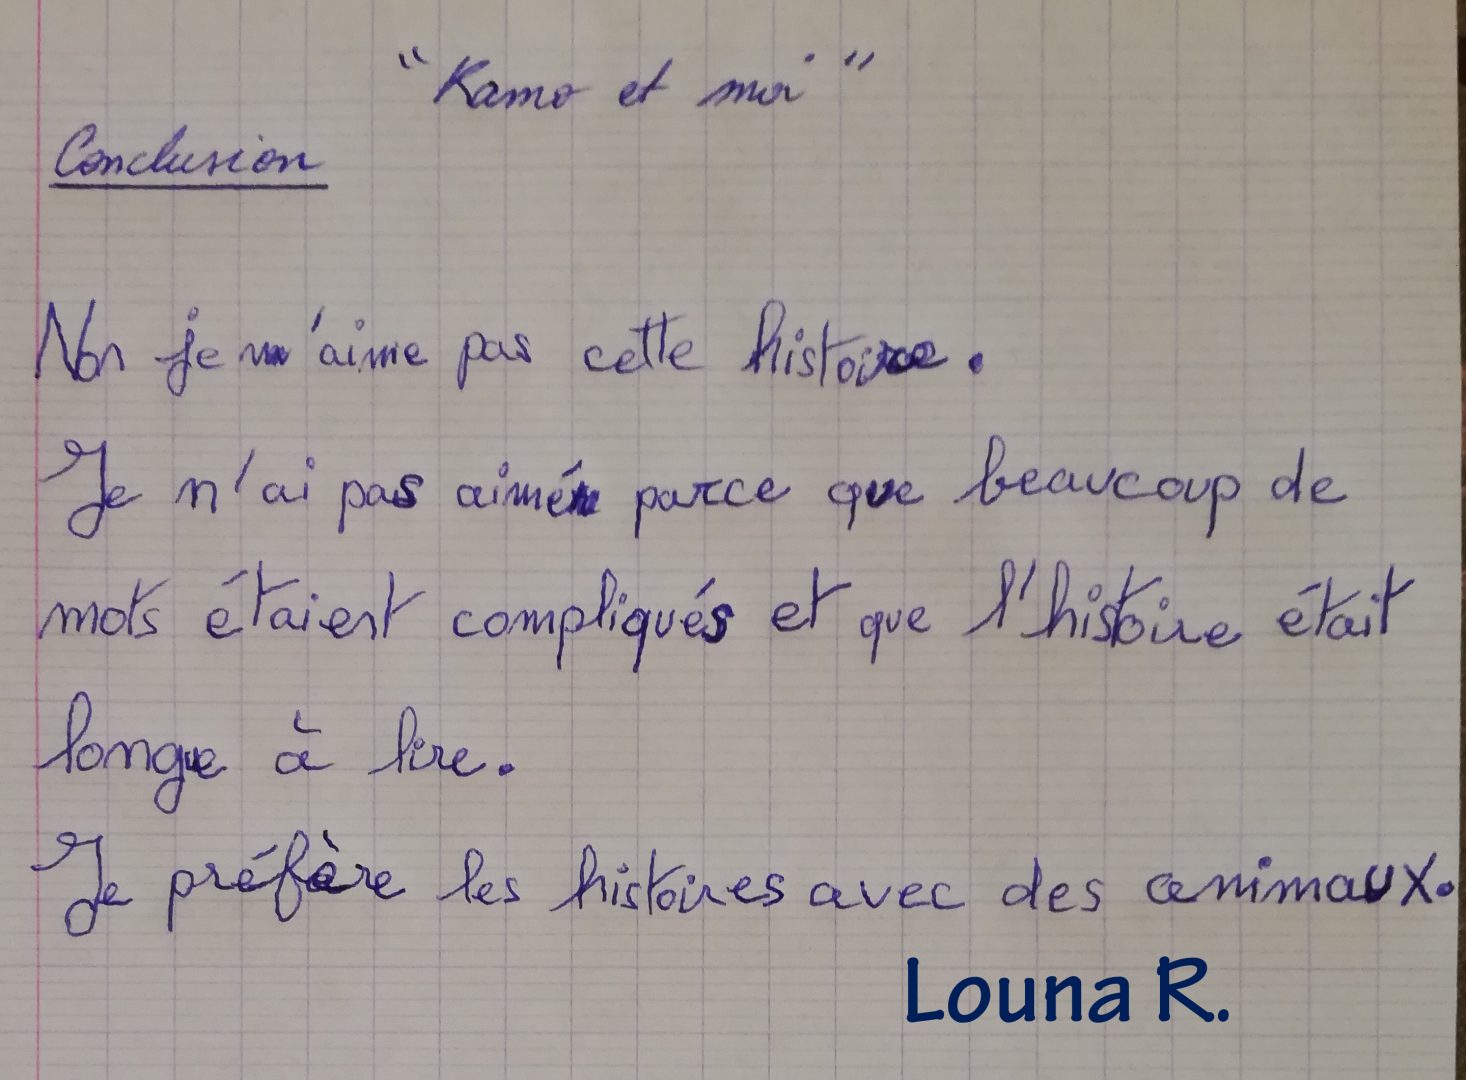 "Kamo et moi"
Conclusion
Non je n'aime pas cette histoire.
Je n'ai pas aimé parce que beaucoup de
mots étaient compliqués et que l'histoire était
longue à lire.
Je préfère les histoires avec des animaux.
Louna R.